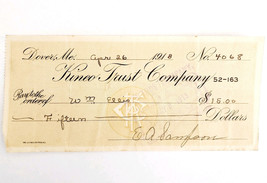 Dover, Me. Apr 26 1918 No. 4068
Kineo Trust Company 52-163
Pay to the order of W M Ellis $15.00
Fifteen Dollars
E A Sampson